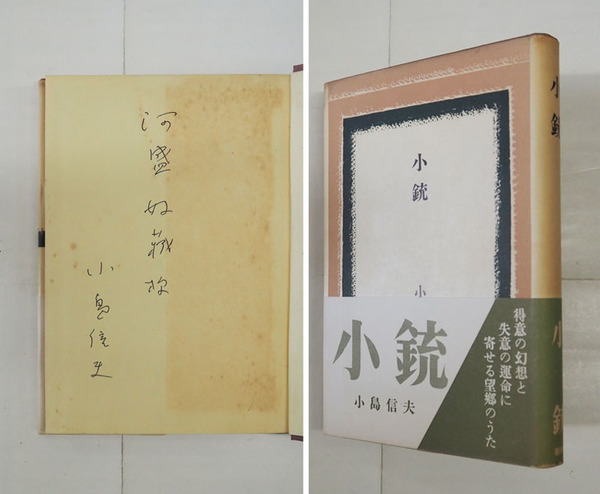 河盛好蔵様
小島信夫
小銃
小
小銃
小島信夫
得意の幻想と
失意の運命に
寄せる望郷のうた
小銃
小銃